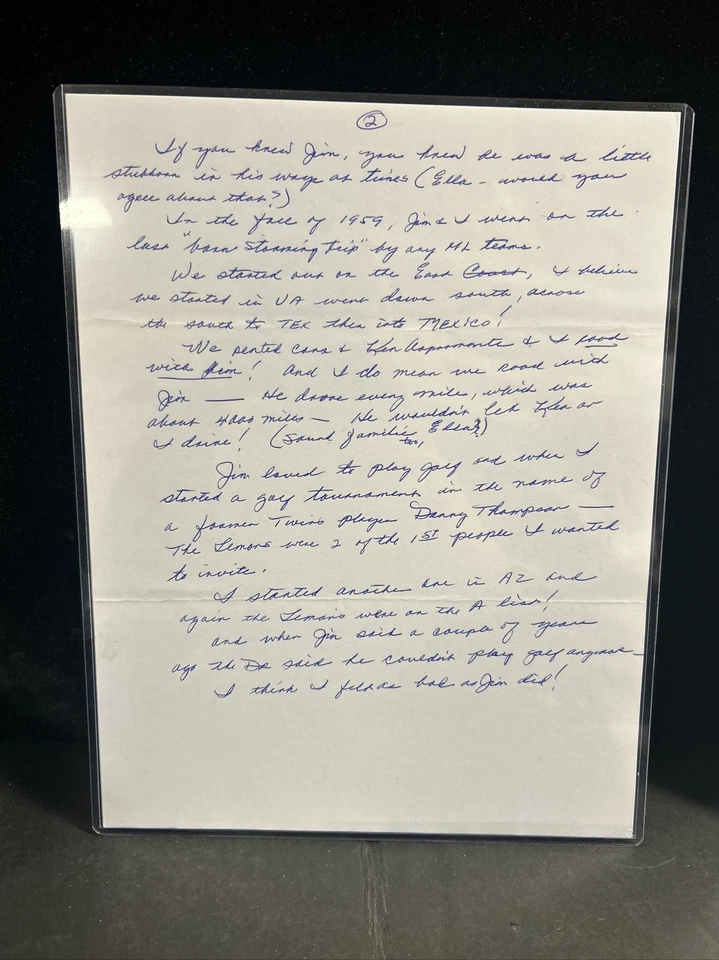 2
If you knew Jim, you knew he was a little
stubborn in his ways at times (Ella - would you
agree about that?)
In the face of 1959, Jim & I went on the
last "barn storming trip" by any ML teams.
We started out on the East Coast, I believe
we started in VA went down south, across
the south to TEX then into MEXICO!
We rented cars & Ken Aspromonte & I road
with him! And I do mean we road with
Jim — He drove every mile, which was
about 4000 miles — He wouldn't let Ken or
I drive! (Sound familiar too, Ella?)
Jim loved to play golf and when I
started a golf tournament in the name of
a former Twins player Danny Thompson —
The Lemons were 2 of the 1ST people I wanted
to invite.
I started another one in AZ and
again the Lemons were on the A list!
and when Jim said a couple of years
ago the Dr said he couldn't play golf anymore —
I think I felt as bad as Jim did!